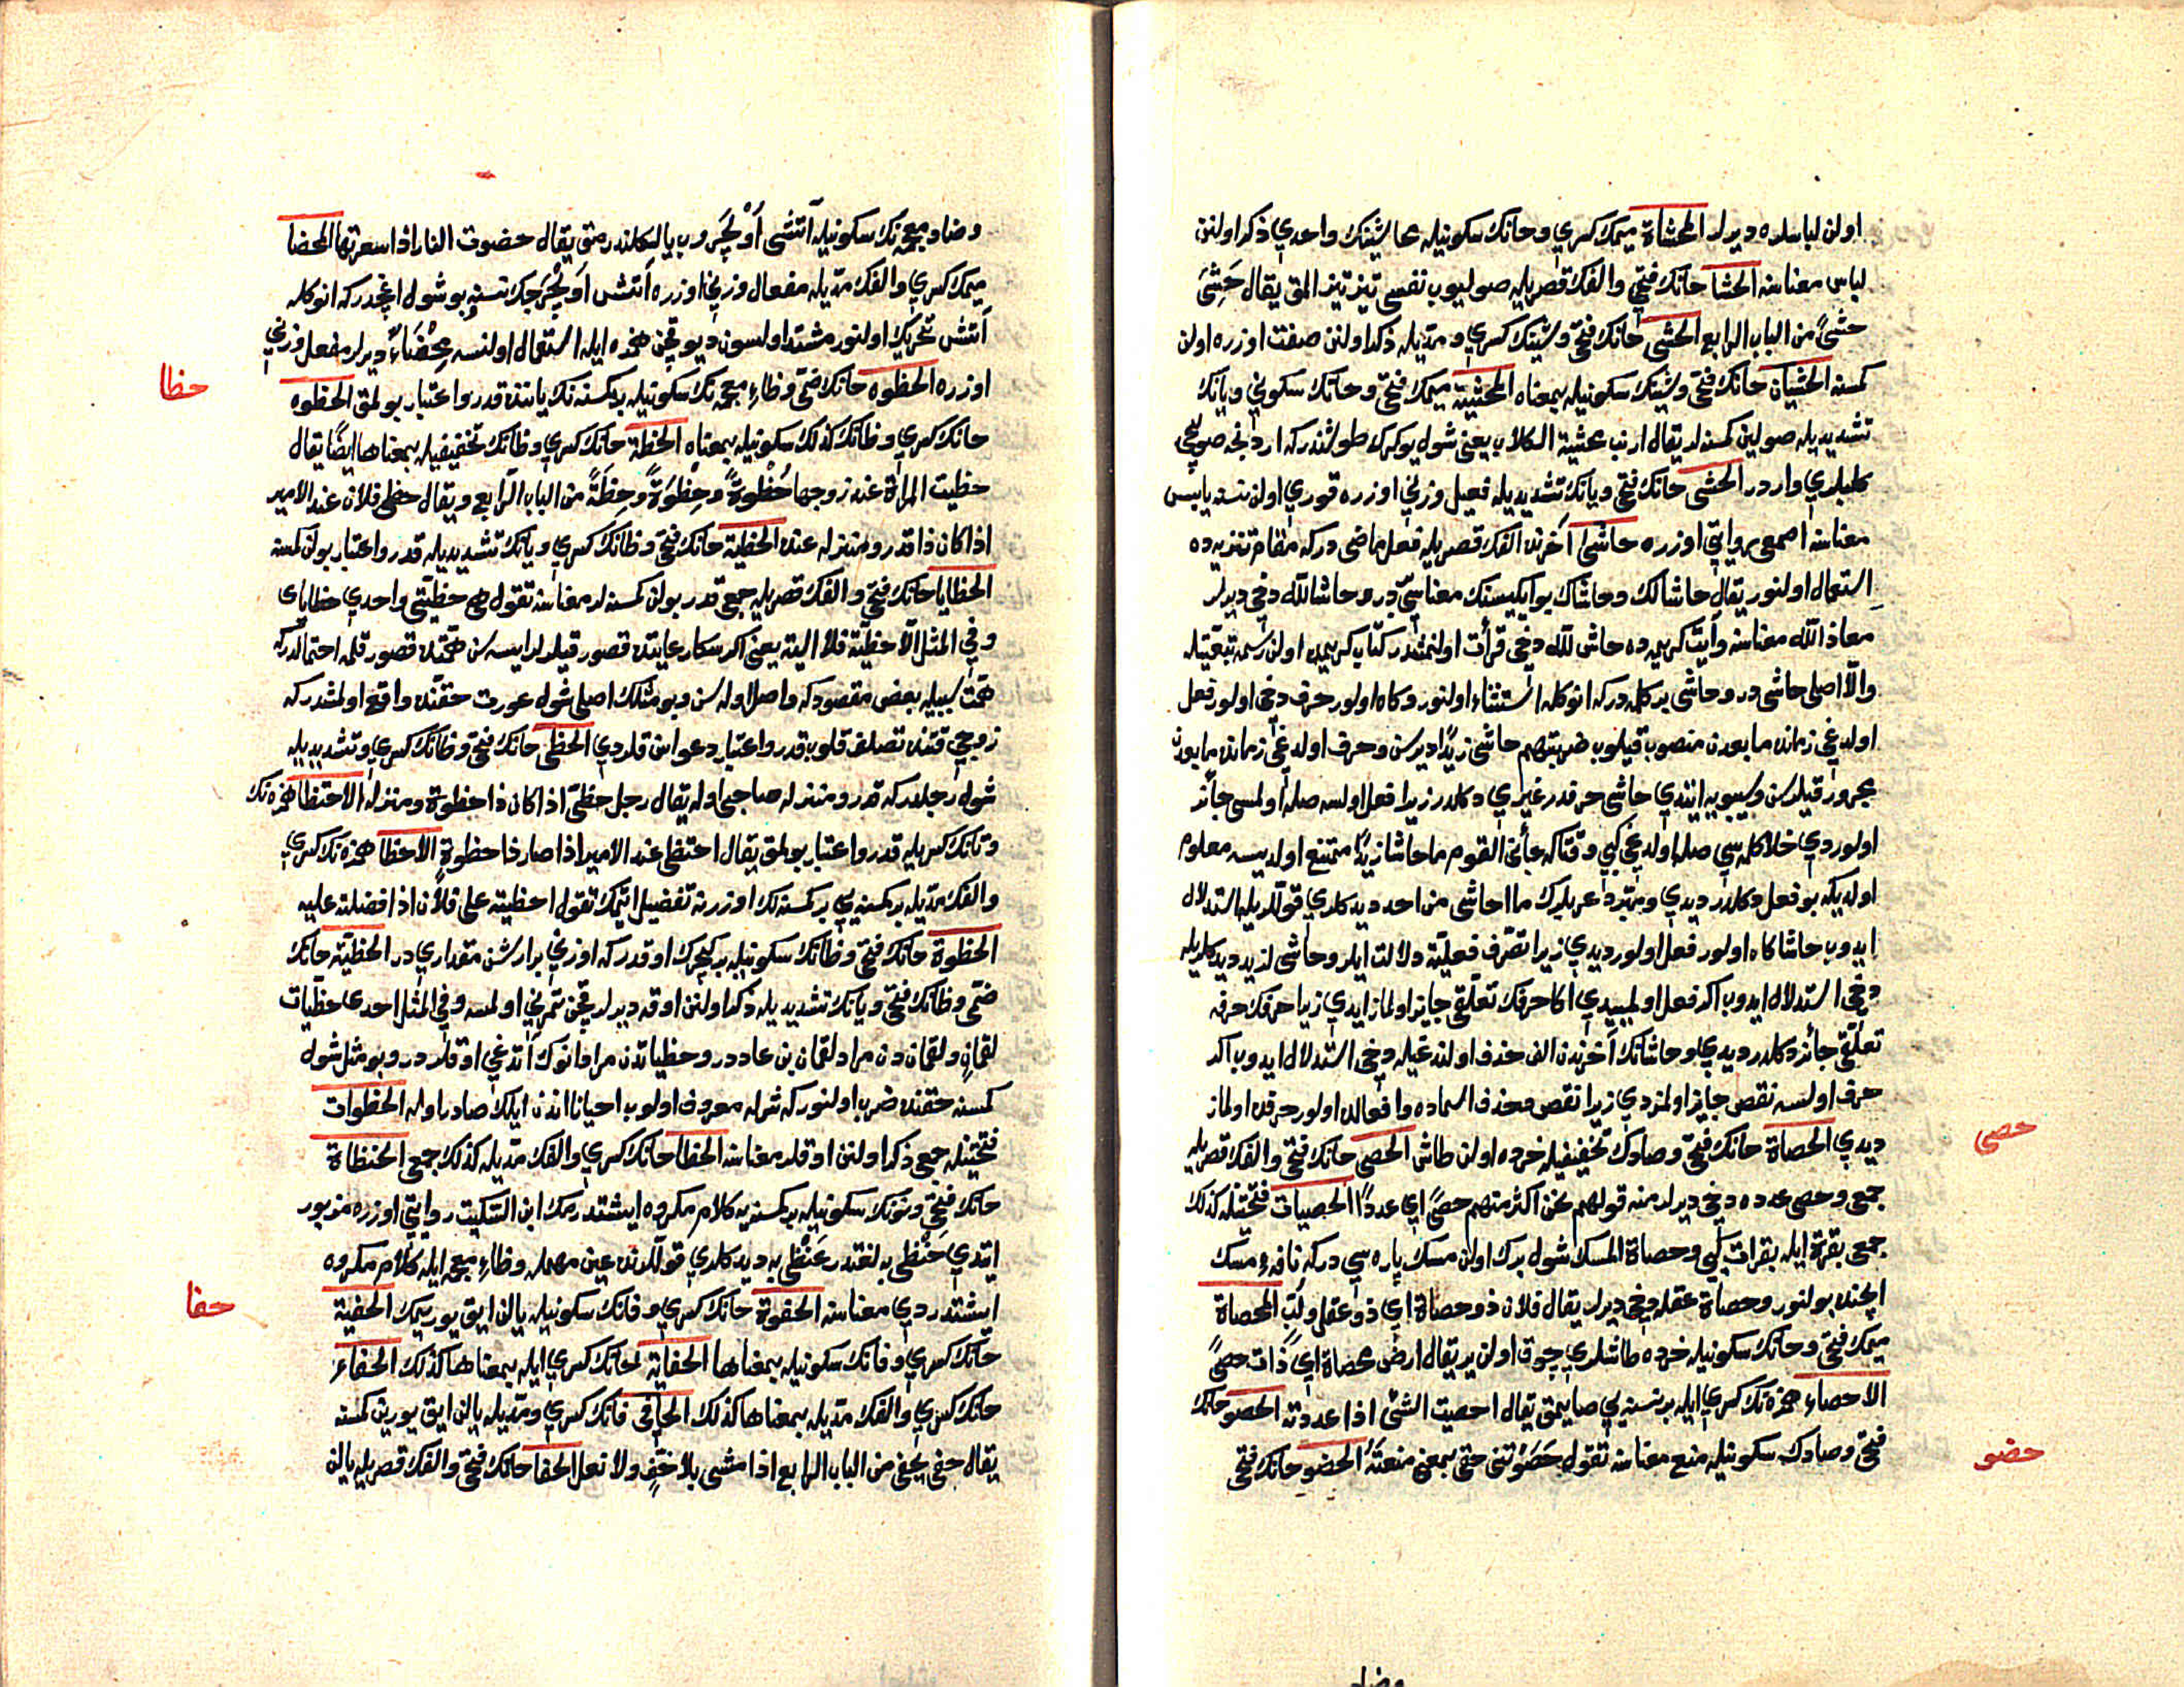 اولن لباسلره ديرلر المحشاة ميمك كسري وحانك سكونيله محاشينك واحدي ذكر اولنن
لباس معناسنه الحشا حانك فتحي والفك قصريله صوليوب نفسي تيز تيز المق يقال حَشِيَ
حشىً من الباب الرابع الحشي حانك فتحي وشينك كسري ومديله ذكر اولنن صفت اوزره اولن
كمسنه الحشيان حانك فتحي وشينك سكونيله بمعناه المحشية ميمك فتحي وحانك سكوني ويانك
تشديديله صولين كمسنه لر يقال ارنب محشية الكلاب يعني شول يوكرك طوشندر كه اردنجه صولغجي
كلبلري واردر الحشي حانك فتحي ويانك تشديديله فعيل وزني اوزره قوري اولن نسنه يابس
معناسنه اصمعي روايتي اوزره حاشى آخرنده الفك قصريله فعل ماضي در كه مقام تنزيه ده
استعمال اولنور يقال حاشا لك وحاشاك بو ايكيسنك معناسي در وحاشا لله دخي ديرلر
معاذ الله معناسنه وآيت كريمه ده حاش لله دخي قرأت اولنمشدر كتاب كريمه اولن رسمه تبعيتله
والا اصلي حاشى در وحاشى بر كلمه در كه انوكله استثناء اولنور وكاه اولور حرف دخي اولور فعل
اولدغي زمانده ما بعدن منصوب قيلوب ضربتهم حاشى زيدًا ديرسن وحرف اولدغي زمانده ما بعدن
مجرور قيلرسن وسيبويه ايتدي حاشى حرفدر غيري دكلدر زيرا فعل اولسه صله اولمسي جائز
اولوردي خلا كلمه سي صله اولدغي كبي وقتا كه جأني القوم ما حاشا زيدًا ممتنع اولديسه معلوم
اولديكه بو فعل دكلدر ديدي ومبرد عربلرك ما احاشي من احد ديدكلري قوللريله استدلال
ايدوب حاشا كاه اولور فعل اولور ديدي زيرا تصرف فعليته دلالت ايلر وحاشى لزيد ديدكلريله
دخي استدلال ايدوب اكر فعل اولميسيدي اكا حرفك تعلقي جايز اولمازايدي زيرا حرفك حرفه
تعلقي جائز دكلدر ديدي وحاشانك آخرندن الف حذف اولندغيله دخي استدلال ايدوب اكر
حرف اولسه نقص جايز اولمزدي زيرا نقص وحذف اسماده وافعالده اولور حرفده اولماز
ديدي الحصاة حانك فتحي وصادك تخفيفيله خرده اولن طاش الحصى حانك فتحي والفك قصريله
جمعي وحصى عدده دخي ديرلر منه قولهم نحن اكثر منهم حصىً اي عددًا الحصيات فتحتينله كذلك
جمعي بقرة ايله بقرات كبي وحصاة المسك شول برك اولن مسك پاره سي در كه نافهء مسك
ايچنده بولنور وحصاة عقله دخي ديرلر يقال فلان ذو حصاة اي ذو عقل ولب المحصاة
ميمك فتحي وحانك سكونيله خرده طاشلري چوق اولن ير يقال ارض محصاة اي ذات حصىً
الاحصاء همزه نك كسري ايله بر نسنه يي صايمق يقال احصيت الشئ اذا عددته الحصو حانك
فتحي وصادك سكونيله منع معناسنه تقول حَصَوْتني حقي بمعنى منعته الحضو حانك فتحي
حصى
حضو
وضاد
وضاد معجمه نك سكونيله آتشي اَوْلَچَروب يالكلندرمق يقال حضوت النار اذا سعرتها المحضا
ميمك كسري والفك مديله مفعال وزني اوزره آتش اولچره جك نسنه بو شول اغجدر كه انوكله
آتش تحريك اولنور مشتد اولسون ديو قچن همزه ايله استعمال اولنسه مِحْضَاءٌ ديرلر مفعل وزني
اوزره الحظوه حانك ضمي وظاء معجمه نك سكونيله بر كمسنه نك ياننده قدر واعتبار بولمق الحظوه
حانك كسري وظانك كذلك سكونيله بمعناه الحظة حانك كسري وظانك تخفيفيله بمعناها ايضًا يقال
حظيت المرأة عند زوجها حُظْوةً وحِظْوَةً وحِظَةً من الباب الرابع ويقال حظي فلان عند الامير
اذا كان ذا قدر ومنزله عنده الحظية حانك فتحي وظانك كسري ويانك تشديديله قدر واعتبار بولن كمسنه
الحظايا حانك فتحي والفك قصريله جمعي قدر بولن كمسنه لر معناسنه تقول هي حظيتي واحدي حظاياي
وفي المثل الا حظية فلا الية يعني اكر سكا رعايتده قصور قيلورلرايسه سن همتده قصور قلمه احتمالدركه
همت سببيله بعض مقصودكه واصل اوله سن وبو مثلك اصلي شول عورت حقنده واقع اولمشدر كه
زوجي قتنده تصلف قلوب قدر واعتبار دعواسن قلردي الحظي حانك فتحي وظانك كسري وتشديديله
شول رجلدر كه قدر ومنزله صاحبي اوله يقال رجل حظي اذا كان ذا حظوة ومنزله الاحتظا همزه نك
وتانك كسريله قدر واعتبار بولمق يقال احتظى عند الامير اذا صار ذا حظوة الاحظا همزه نك كسري
والفك مديله بر كمسنه يي بر كمسنه نك اوزرينه تفضيل ايتمك تقول احظيته على فلان اذا فضلته عليه
الحظوة حانك فتحي وظانك سكونيله بر كچرك اوقدر كه اوزني بر ارشن مقداري در الحظية حانك
ضمي وظانك فتحي ويانك تشديديله ذكر اولنن اوقه ديرلر قچن تمرني اولمسه وفي المثل احدى حظيات
لقمان ولقمان دن مراد لقمان بن عاد در وحظياتدن مراد انوك آتدغي اوقلردر وبو مثل شول
كمسنه حقنده ضرب اولنور كه شرله معروف اولوب احيانا اندن ايلك صادر اوله الحظوات
فتحتينله جمعي ذكر اولنن اوقلر معناسنه الحظا حانك كسري والفك مديله كذلك جمعي الحنظاة
حانك فتحي ونونك سكونيله بر كمسنه يه كلام مكروه ايشتدرمك ابن السكيت روايتي اوزره مزبور
ايتدي حِنْظى به لغتدر عَنْظى به ديدكلري قوللرنده عين مهمله وظاء معجمه ايله كلام مكروه
ايشتدردي معناسنه الحفوة حانك كسري وفانك سكونيله يالن ايق يوريمك الحفية
حانك كسري وفانك سكونيله بمعناها الحفاية حانك كسري ايله بمعناها كذلك الحفاء
حانك كسري والفك مديله بمعناها كذلك الحافي فانك كسري ومديله يالن ايق يورين كمسنه
يقال حفي يحفى من الباب الرابع اذا مشى بلا خف ولا نعل الحفا حانك فتحي والفك قصريله يالن
حظا
حفا